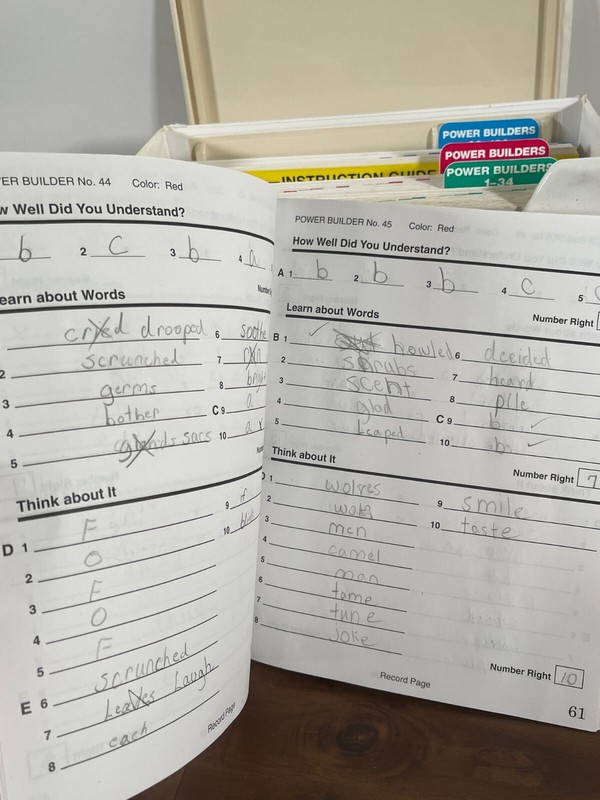 POWER BUILDERS
POWER BUILDERS
POWER BUILDERS
1-34
INSTRUCTION GUIDE
ER BUILDER No. 44 Color: Red
w Well Did You Understand?
b 2 c 3 b 4 a
Number
earn about Words
cried drooped 6 soothe
2 scrunched 7
3 germs 8
4 bother C 9 a
5 glands sacs 10 a
Think about It
D 1 F 9 if
2 O 10
3 F
4 O
5 F
E 6 scrunched
7 Leaves Laugh
8 each
Record Page
POWER BUILDER No. 45 Color: Red
How Well Did You Understand?
A 1 b 2 b 3 b 4 c 5
Number Right
Learn about Words
B 1 howled 6 decided
2 shrubs 7 heard
3 scent 8 pile
4 glad C 9 b
5 leaped 10 b
Number Right 7
Think about It
D 1 wolves 9 smile
2 10 taste
3 men
4 camel
5 man
6 tame
7 tune
8 joke
Number Right 10
Record Page
61